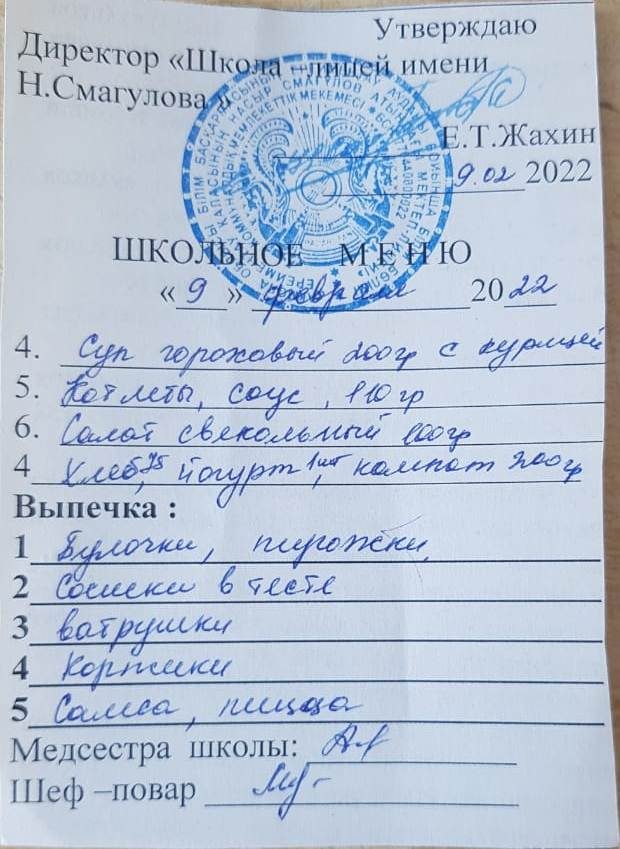 Утверждаю
Директор «Школа –лицей имени
Н.Смагулова »
Е.Т.Жахин
9.02 2022
ШКОЛЬНОЕ МЕНЮ
« 9 » февраля 2022
4. Суп гороховый 200гр с курицей
5. Котлеты, соус, 110гр
6. Салат свекольный 100гр
4 Хлеб 75, йогурт 1шт, компот 200гр
Выпечка :
1 Булочки, пирожки,
2 Сосиски в тесте
3 ватрушки
4 Коржики
5 Самса, пицца
Медсестра школы:
Шеф –повар